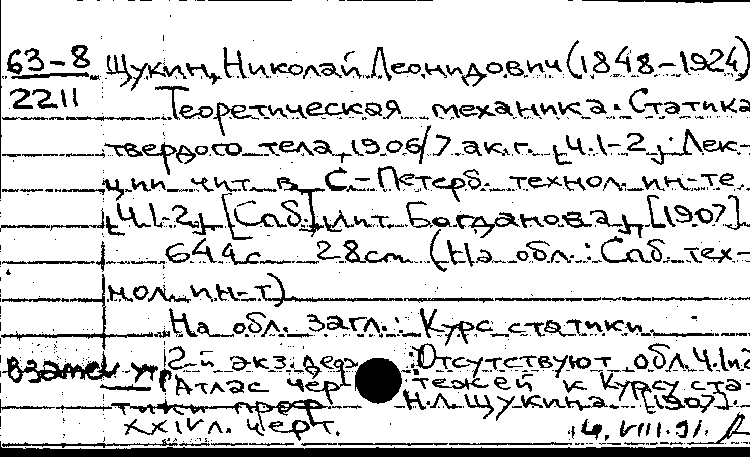 63-8 Щукин, Николай Леонидович (1848-1924)
2211 Теоретическая механика. Статика
твердого тела, 1906/7 ак.г. [Ч.1-2]: Лек-
ции чит. в С-Петерб. технол. ин-те.
[Ч.1-2] [Спб.], лит. Богданова, [1907].
644 с. 28 см (На обл.: Спб. тех-
нол. ин-т)
На обл. загл.: Курс статики.
2-й экз. деф.: Отсутствуют обл. Ч.1 и 2
взамен утр.
Атлас чертежей к курсу ста-
тики проф. Н.Л. Щукина. [1907].
XXIV л. черт. 14.VIII.91.